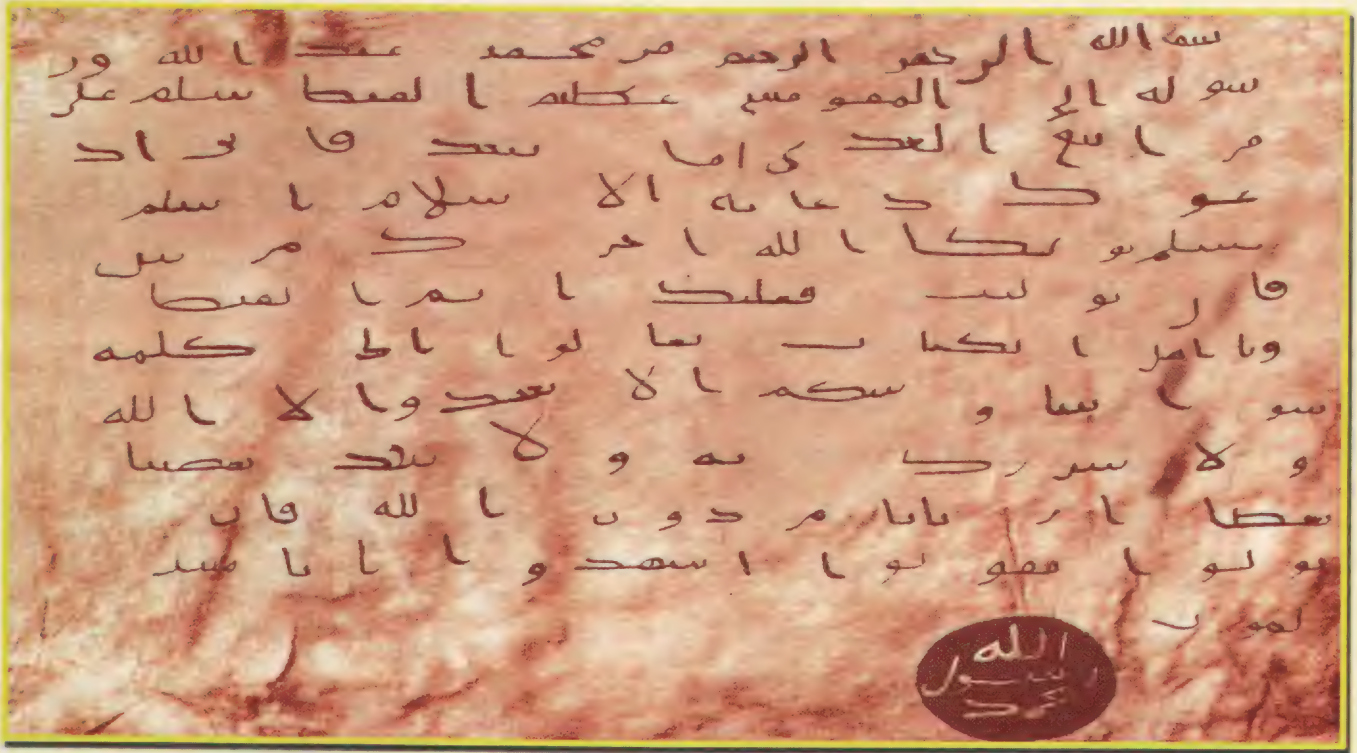 بسم الله الرحمن الرحيم من محمد عبد الله ور
سوله إلى المقوقس عظيم القبط سلام على
من اتبع الهدى أما بعد فإني أد
عوك بدعاية الإسلام أسلم
تسلم يؤتك الله أجرك مرتين
فإن توليت فعليك إثم القبط
ويا أهل الكتاب تعالوا إلى كلمة
سواء بيننا وبينكم ألا نعبد إلا الله
ولا نشرك به ولا يتخذ بعضنا
بعضا أربابا من دون الله فإن
تولوا فقولوا اشهدوا بأنا مس
لمون
الله
رسول
محمد